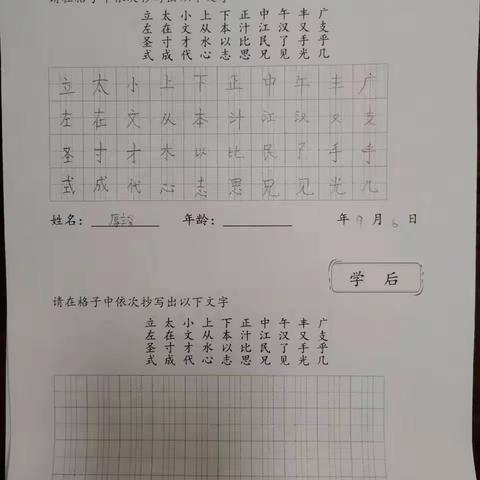 请在格子中依次抄写出以下文字
立 太 小 上 下 正 中 午 丰 广
左 在 文 从 本 汁 江 汉 又 支
圣 寸 才 水 以 比 民 了 手 乎
式 成 代 心 志 思 兄 见 光 几
立 太 小 上 下 正 中 午 丰 广
左 在 文 从 本 汁 江 汉 又 支
圣 寸 才 水 以 比 民 了 手 乎
式 成 代 心 志 思 兄 见 光 几
姓名： 年龄： 年 9 月 6 日
学 后
请在格子中依次抄写出以下文字
立 太 小 上 下 正 中 午 丰 广
左 在 文 从 本 汁 江 汉 又 支
圣 寸 才 水 以 比 民 了 手 乎
式 成 代 心 志 思 兄 见 光 几